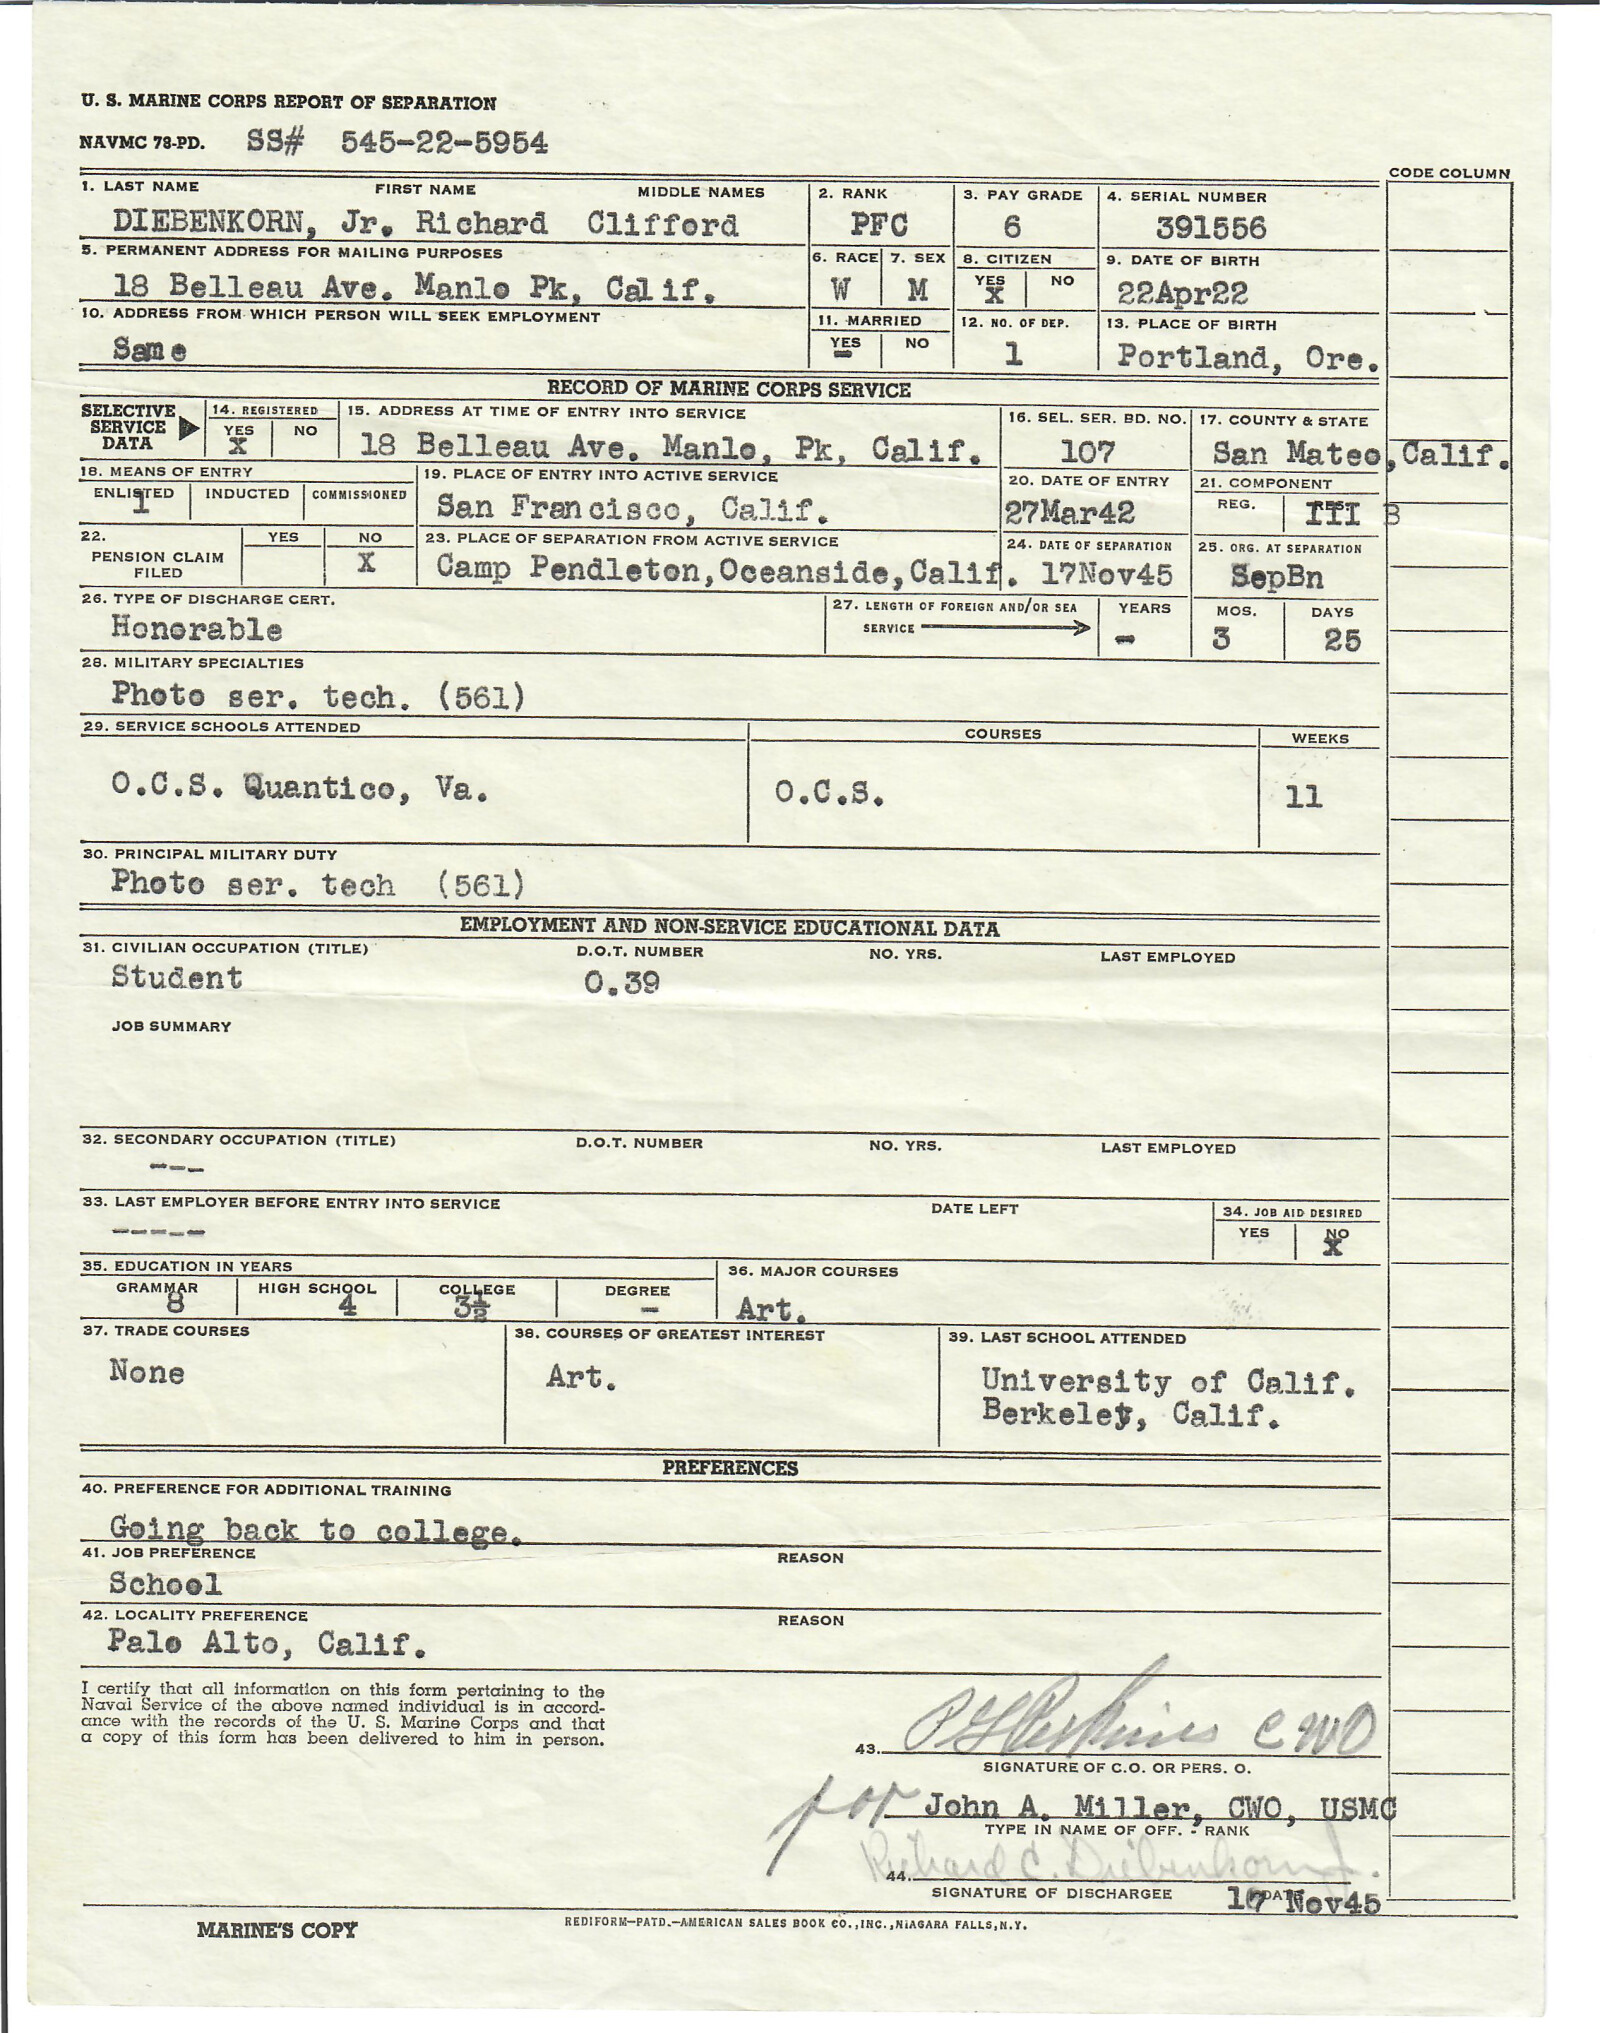 U. S. MARINE CORPS REPORT OF SEPARATION
NAVMC 78-PD. SS# 545-22-5954
CODE COLUMN
1. LAST NAME FIRST NAME MIDDLE NAMES 2. RANK 3. PAY GRADE 4. SERIAL NUMBER
DIEBENKORN, Jr. Richard Clifford PFC 6 391556
5. PERMANENT ADDRESS FOR MAILING PURPOSES 6. RACE 7. SEX 8. CITIZEN 9. DATE OF BIRTH
YES NO
18 Belleau Ave. Manlo Pk, Calif. W M X 22Apr22
10. ADDRESS FROM WHICH PERSON WILL SEEK EMPLOYMENT 11. MARRIED 12. NO. OF DEP. 13. PLACE OF BIRTH
YES NO
Same - 1 Portland, Ore.
RECORD OF MARINE CORPS SERVICE
SELECTIVE SERVICE DATA 14. REGISTERED 15. ADDRESS AT TIME OF ENTRY INTO SERVICE 16. SEL. SER. BD. NO. 17. COUNTY & STATE
YES NO
X 18 Belleau Ave. Manlo, Pk, Calif. 107 San Mateo, Calif.
18. MEANS OF ENTRY 19. PLACE OF ENTRY INTO ACTIVE SERVICE 20. DATE OF ENTRY 21. COMPONENT
ENLISTED INDUCTED COMMISSIONED REG. RES.
1 San Francisco, Calif. 27Mar42 III B
22. PENSION CLAIM FILED YES NO 23. PLACE OF SEPARATION FROM ACTIVE SERVICE 24. DATE OF SEPARATION 25. ORG. AT SEPARATION
X Camp Pendleton,Oceanside,Calif. 17Nov45 SepBn
26. TYPE OF DISCHARGE CERT. 27. LENGTH OF FOREIGN AND/OR SEA SERVICE YEARS MOS. DAYS
Honorable - 3 25
28. MILITARY SPECIALTIES
Photo ser. tech. (561)
29. SERVICE SCHOOLS ATTENDED COURSES WEEKS
O.C.S. Quantico, Va. O.C.S. 11
30. PRINCIPAL MILITARY DUTY
Photo ser. tech (561)
EMPLOYMENT AND NON-SERVICE EDUCATIONAL DATA
31. CIVILIAN OCCUPATION (TITLE) D.O.T. NUMBER NO. YRS. LAST EMPLOYED
Student 0.39
JOB SUMMARY
32. SECONDARY OCCUPATION (TITLE) D.O.T. NUMBER NO. YRS. LAST EMPLOYED
---
33. LAST EMPLOYER BEFORE ENTRY INTO SERVICE DATE LEFT 34. JOB AID DESIRED
YES NO
----- X
35. EDUCATION IN YEARS 36. MAJOR COURSES
GRAMMAR HIGH SCHOOL COLLEGE DEGREE
8 4 3½ - Art.
37. TRADE COURSES 38. COURSES OF GREATEST INTEREST 39. LAST SCHOOL ATTENDED
None Art. University of Calif.
Berkeley, Calif.
PREFERENCES
40. PREFERENCE FOR ADDITIONAL TRAINING
Going back to college.
41. JOB PREFERENCE REASON
School
42. LOCALITY PREFERENCE REASON
Palo Alto, Calif.
I certify that all information on this form pertaining to the
Naval Service of the above named individual is in accord-
ance with the records of the U. S. Marine Corps and that
a copy of this form has been delivered to him in person.
43. Perkins CWO
SIGNATURE OF C.O. OR PERS. O.
for John A. Miller, CWO, USMC
TYPE IN NAME OF OFF. - RANK
44. Richard C. Diebenkorn Jr.
SIGNATURE OF DISCHARGEE DATE
17 Nov45
MARINE'S COPY
REDIFORM—PATD.—AMERICAN SALES BOOK CO.,INC.,NIAGARA FALLS,N.Y.